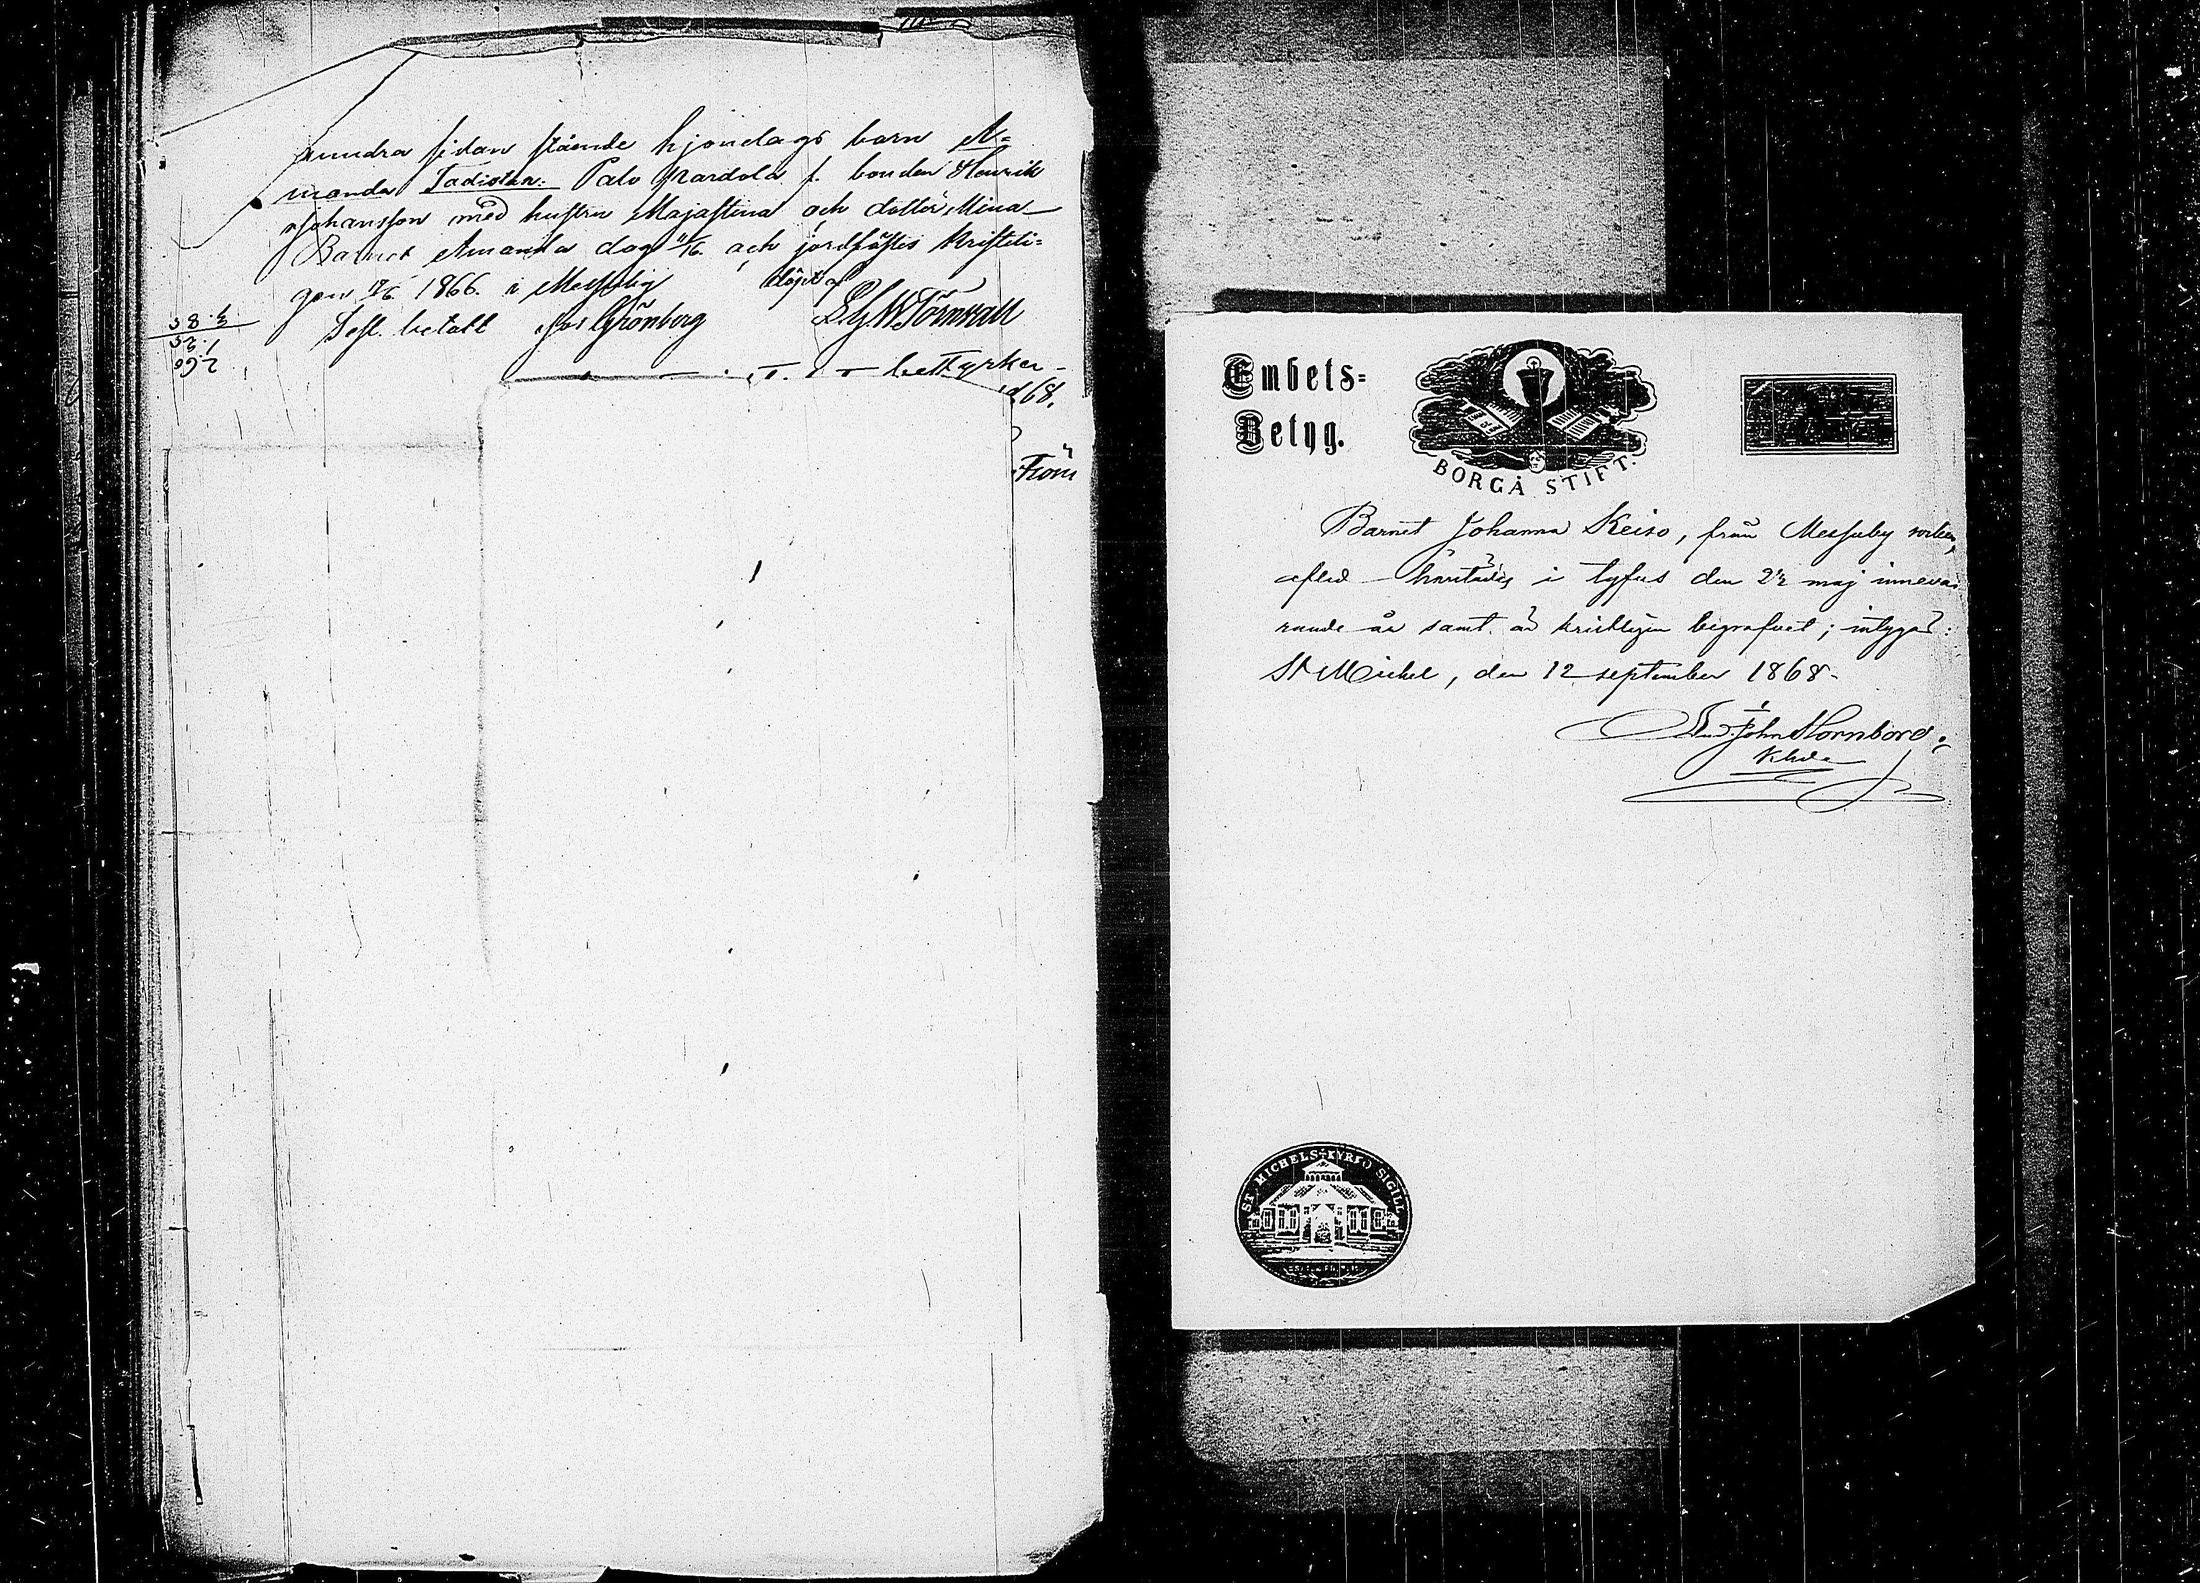 andra sidan stående hjonelags barn A=
manda Fadistar: Palo Pardola f. bonden Henrik
Johansson med hustru Majastina och dotter Mina
Barnet Amanda dog 11/6. och jordfästes Kristeli=
gen 17/6 1866. i Messuby döpt af
Sefl. betalt Grönberg Törnwall
3.85
1.25
2.60
bettyrker
d68.
Embets=
Betyg.
BORGÅ STIFT.
Barnet Johanna Keiso, från Messuby socken,
afled härstädes i tyfus den 22 maj inneva-
rande år samt är kristligen begrafvet; intygas:
St Michel, den 12 september 1868.
John Hornborg.
ST. MICHELS KYRKO SIGILL